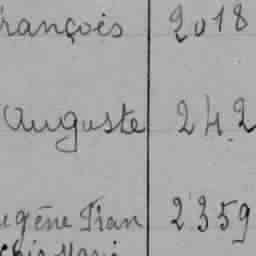 François 2018
Auguste 242
ugène Fran 2359